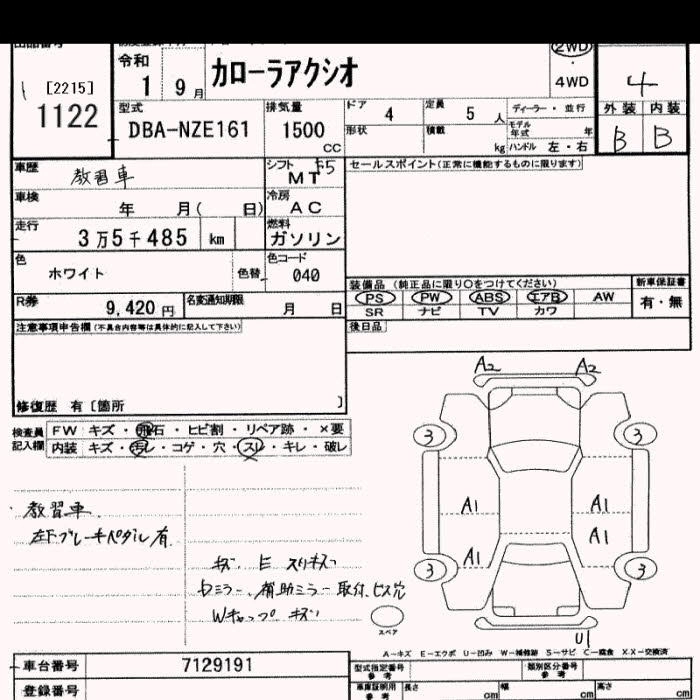 令和 1 9月 カローラアクシオ 2WD
[2215] 4WD 4
1122 型式 排気量 ドア 4 定員 5 人 ディーラー・並行 外装 内装
DBA-NZE161 1500 CC 形状 積載 kg モデル年式 年 B B
ハンドル 左・右
車歴 教習車 シフト F5 MT セールスポイント(正常に機能するものに限ります)
車検 年 月( 日) 冷房 AC
走行 3万5千485 km 燃料 ガソリン
色 ホワイト 色替 色コード 040 装備品 (純正品に限り○をつけてください) 新車保証書
PS PW ABS エアB AW 有・無
R券 9,420円 名変通知期限 月 日 SR ナビ TV カワ
注意事項申告欄(不具合内容等は具体的に記入して下さい) 後日品
修復歴 有〔箇所 〕
A2 A2
検査員記入欄 FW キズ・飛石・ヒビ割・リペア跡・×要
内装 キズ・汚レ・コゲ・穴・スレ・キレ・破レ
3 3
A1 A1
A1
A1
3 3
教習車
左下ブレーキペダル有
キズ E スリキズ
Dミラー、補助ミラー取付ビス穴
Wキャップ キズ
スペア
U1
A−キズ E−エクボ U−凹み W−補修跡 S−サビ C−腐食 X.XX−交換済
車台番号 7129191 型式指定番号 参考 類別区分番号 参考
登録番号 車庫証明用 参考 長さ cm 幅 cm 高さ cm